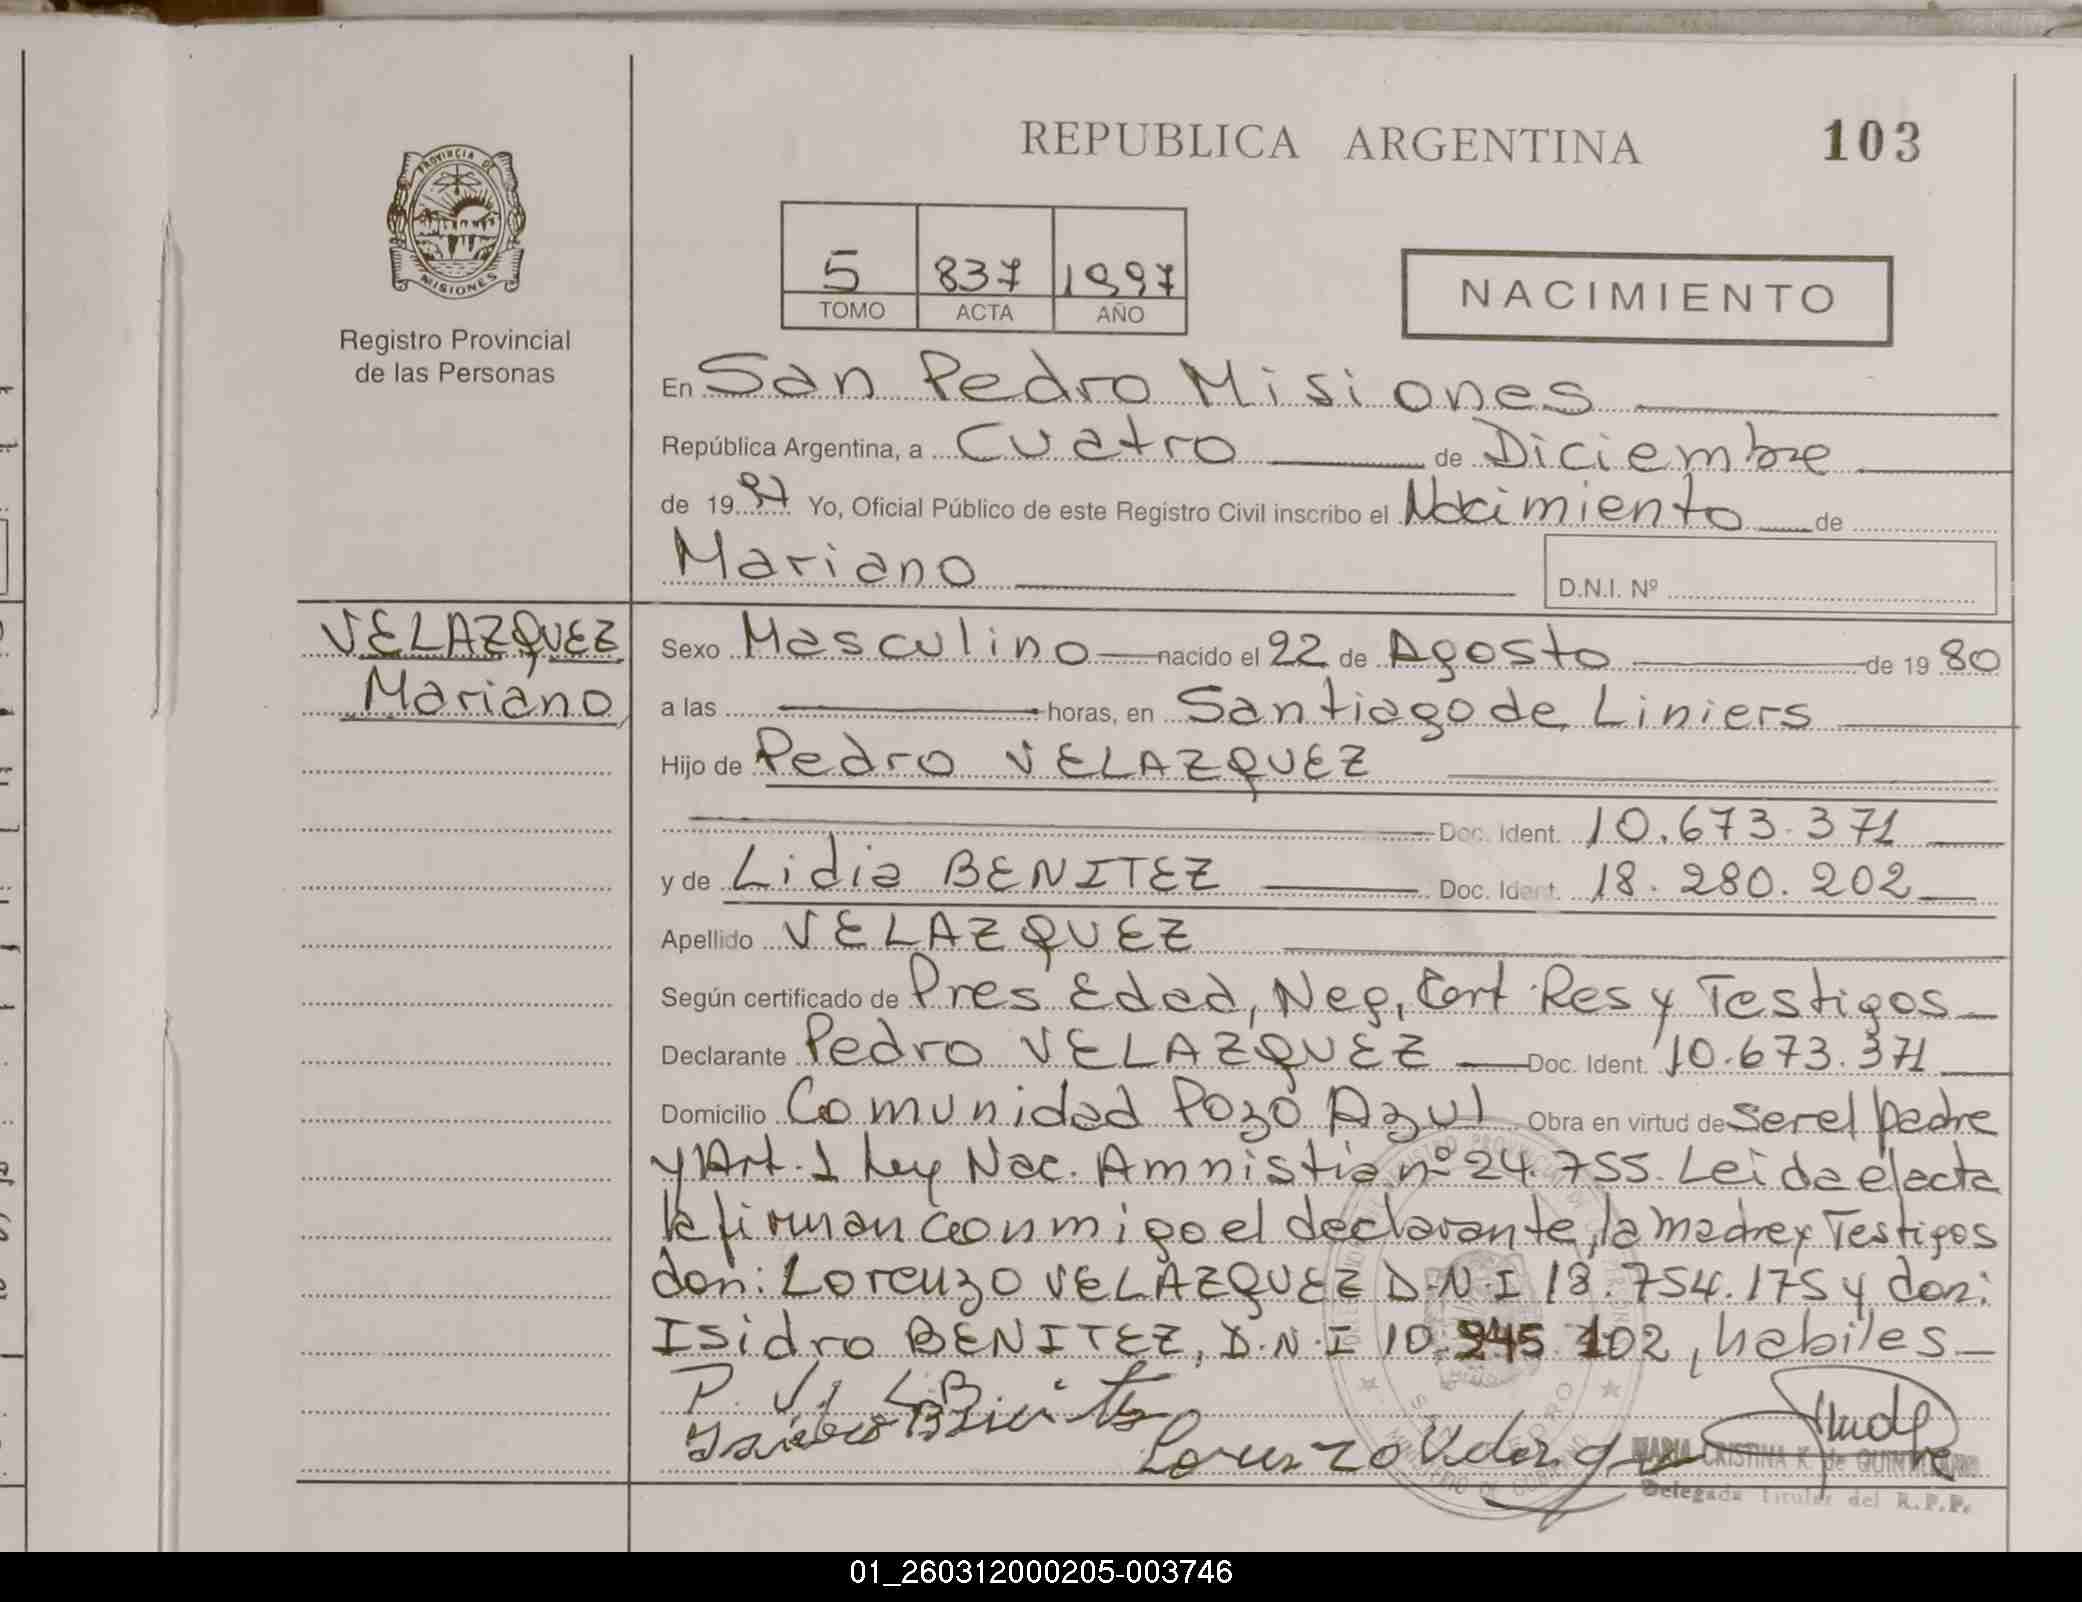 REPUBLICA ARGENTINA 103
PROVINCIA DE
MISIONES
Registro Provincial
de las Personas
5 837 1997
TOMO ACTA AÑO
NACIMIENTO
En San Pedro Misiones
República Argentina, a Cuatro de Diciembre
de 1997 Yo, Oficial Público de este Registro Civil inscribo el Nacimiento de
Mariano
D.N.I. Nº
VELAZQUEZ
Mariano
Sexo Masculino nacido el 22 de Agosto de 1980
a las horas, en Santiago de Liniers
Hijo de Pedro VELAZQUEZ
Doc. Ident. 10.673.371
y de Lidia BENITEZ Doc. Ident. 18.280.202
Apellido VELAZQUEZ
Según certificado de Pres Edad, Neg, Cert Res y Testigos
Declarante Pedro VELAZQUEZ Doc. Ident. 10.673.371
Domicilio Comunidad Pozo Azul Obra en virtud de ser el padre
y Art. 1 Ley Nac. Amnistia nº 24.755. Leida el acta
la firman conmigo el declarante, la madre y Testigos
don: Lorenzo VELAZQUEZ D.N.I 18.754.175 y don:
Isidro BENITEZ, D.N.I 10.945.102, habiles
P. V. L.B.
Isidro Benitez
Lorenzo
MARIA CRISTINA K. de
Delegada Titular del R.P.P.
01_260312000205-003746